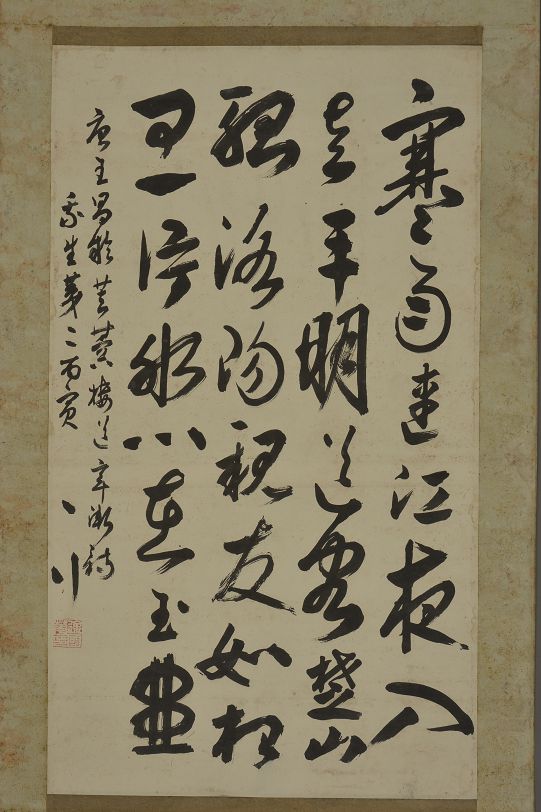 寒雨連江夜入
吳平明送客楚山
孤洛陽親友如相
問一片冰心在玉壺
唐王昌齡芙蓉樓送辛漸詩
我生第二丙寅